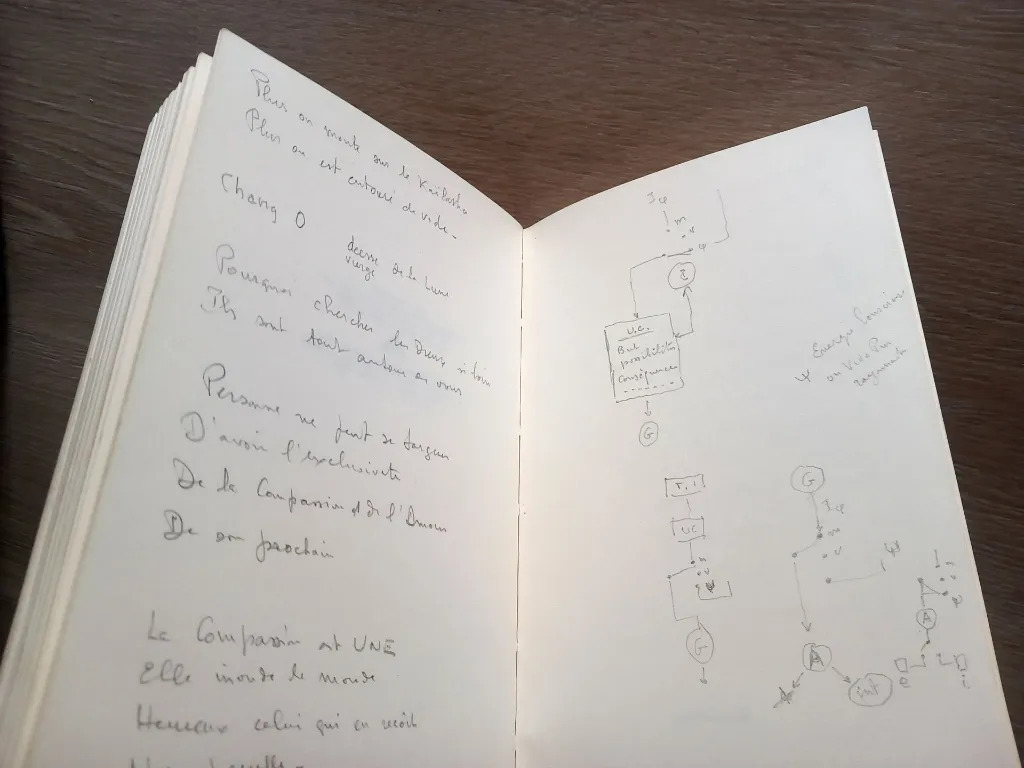 Plus on monte sur le Kailasha
Plus on est entouré de vide.
Chang O
déesse de la lune
vierge
Pourquoi chercher les Dieux si loin
Ils sont tout autour de vous
Personne ne peut se targuer
D'avoir l'exclusivité
De la Compassion et de l'Amour
De son prochain
La Compassion est UNE
Elle inonde le monde
Heureux celui qui en reçoit
m
v
U.C.
But
possibilités
Conséquences
G
Energie
ou Vide Pur
U.C
m
v
G
G
m
v
A
int
A
e
i